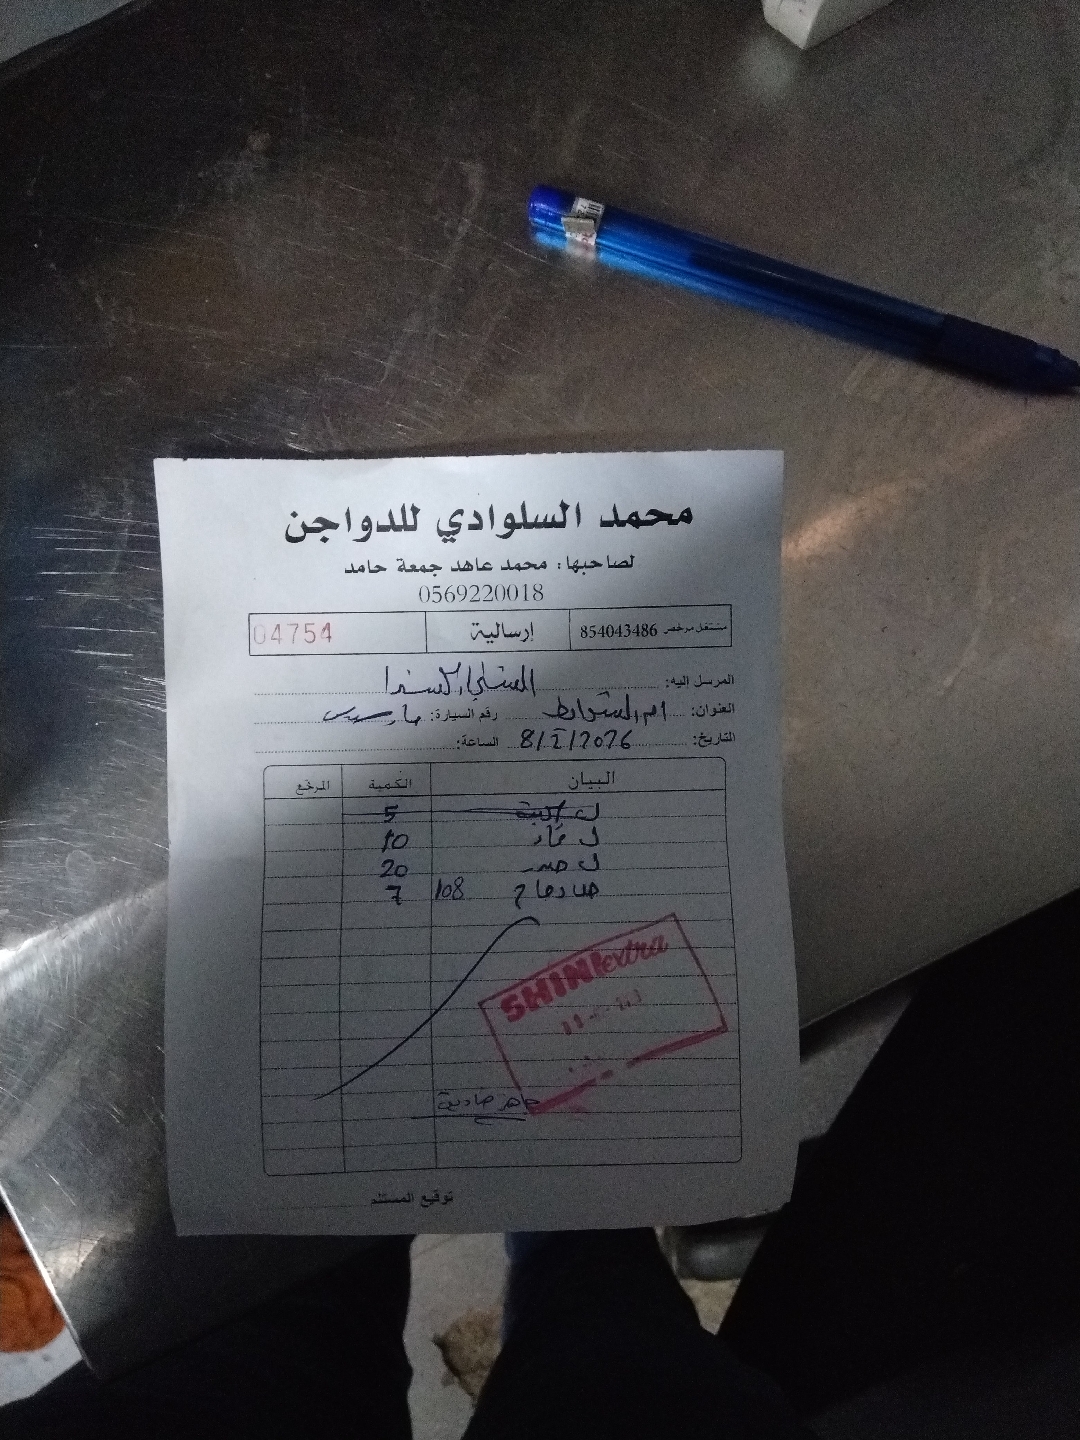 محمد السلوادي للدواجن
لصاحبها: محمد عاهد جمعة حامد
0569220018
مشتغل مرخص 854043486 إرسالية 04754
المرسل إليه:
العنوان: ام الشرايط رقم السيارة:
التاريخ: 8/1/2026 الساعة:
البيان الكمية المرجع
5
10
ل صدر 20
108 7
SHINI extra
توقيع المستلم